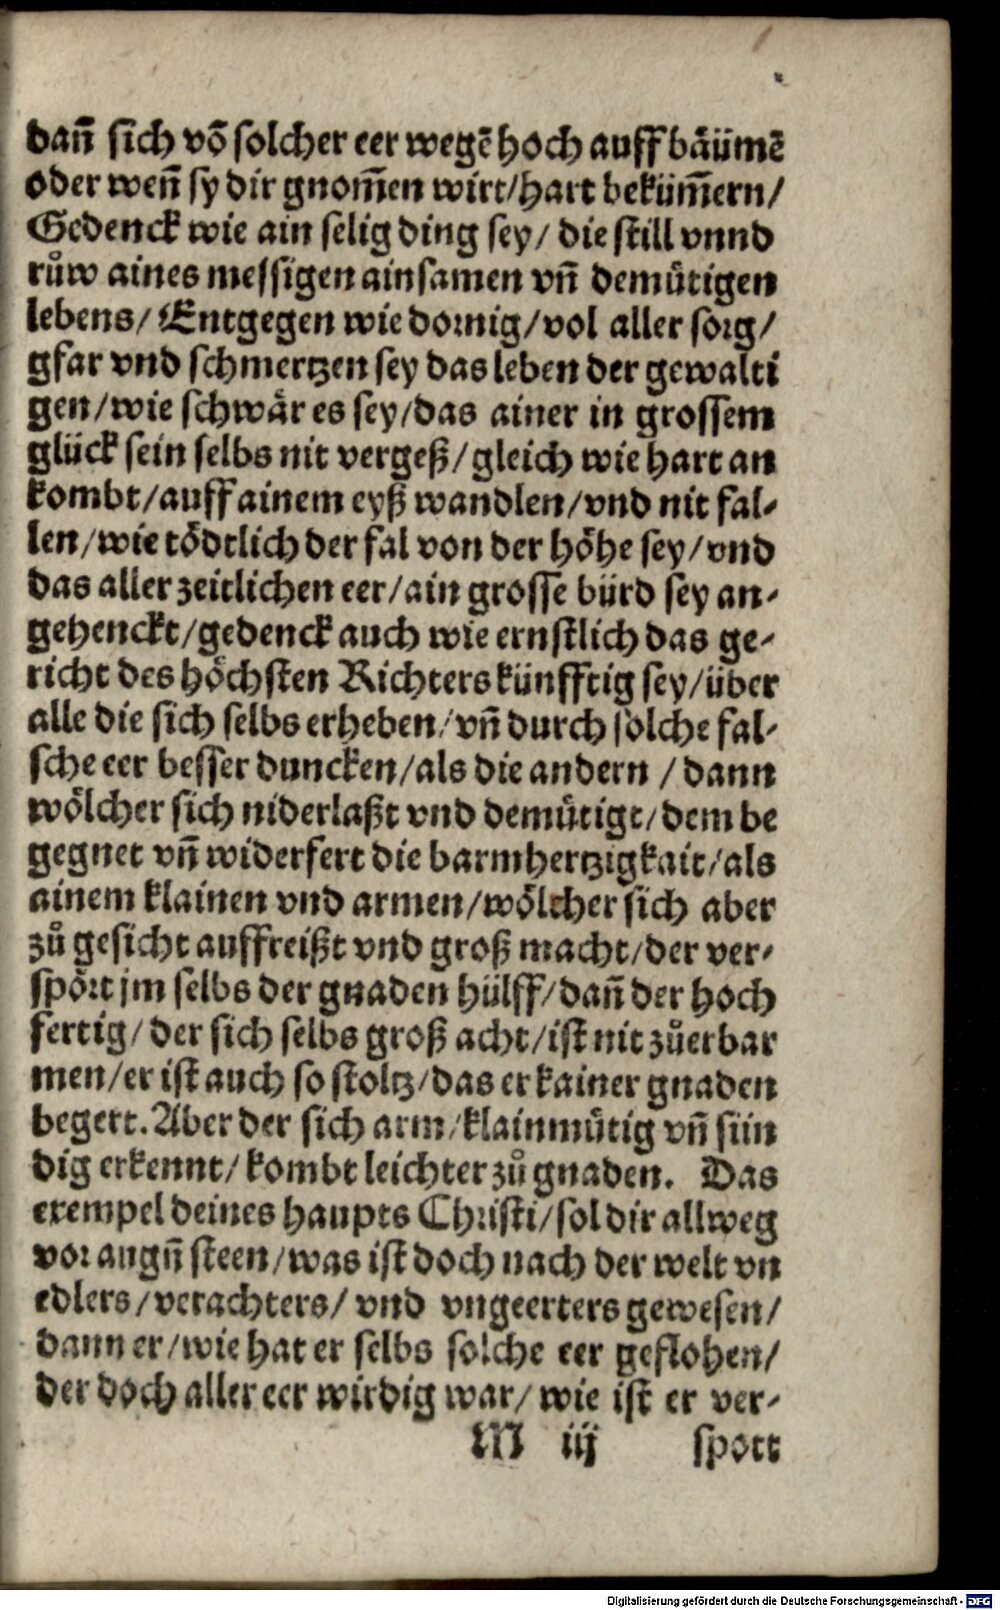 dañ sich võ solcher eer wegẽ hoch auff bäümẽ
oder weñ sy dir gnom̃en wirt/hart beküm̃ern/
Gedenck wie ain selig ding sey/ die still vnnd
růw aines messigen ainsamen vñ demůtigen
lebens/ Entgegen wie dornig/vol aller sorg/
gfar vnd schmertzen sey das leben der gewalti
gen/wie schwår es sey/das ainer in grossem
glück sein selbs nit vergeß/gleich wie hart an
kombt/auff ainem eyß wandlen/vnd nit fal-
len/wie tödtlich der fal von der höhe sey/vnd
das aller zeitlichen eer/ain grosse bürd sey an-
gehenckt/gedenck auch wie ernstlich das ge-
richt des höchsten Richters künfftig sey/über
alle die sich selbs erheben/vñ durch solche fal-
sche eer besser duncken/als die andern / dann
wölcher sich niderlaßt vnd demůtigt/dem be
gegnet vñ widerfert die barmhertzigkait/als
ainem klainen vnd armen/wölcher sich aber
zů gesicht auffreißt vnd groß macht/der ver-
spört jm selbs der gnaden hülff/dañ der hoch
fertig/der sich selbs groß acht/ist nit zůerbar
men/er ist auch so stoltz/das er kainer gnaden
begert. Aber der sich arm/klainmůtig vñ sün
dig erkennt/ kombt leichter zů gnaden. Das
exempel deines haupts Christi/sol dir allweg
vor augñ steen/was ist doch nach der welt vn
edlers/verachters/ vnd vngeerters gewesen/
dann er/wie hat er selbs solche eer geflohen/
der doch aller eer wirdig war/ wie ist er ver-
M iij spott
Digitalisierung gefördert durch die Deutsche Forschungsgemeinschaft - DFG